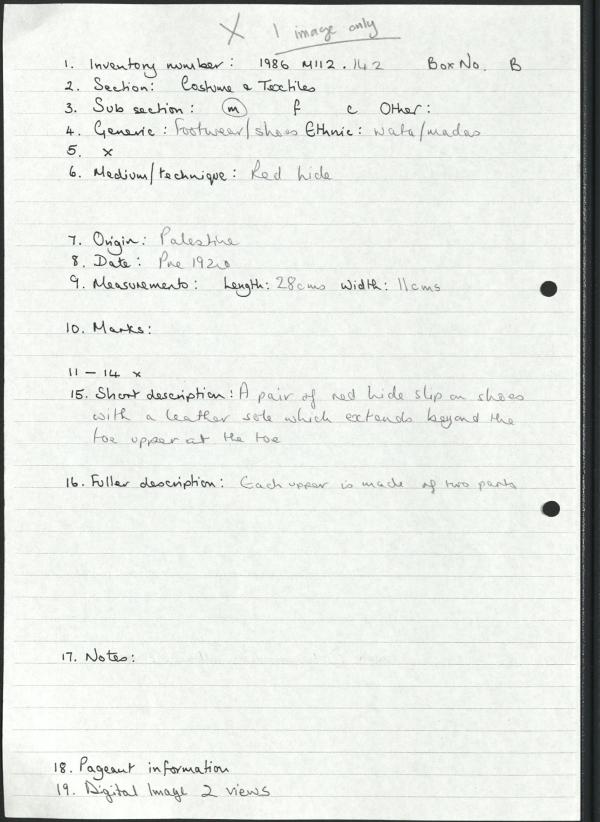 X 1 image only
1. Inventory number: 1986 M112.142 Box No. B
2. Section: Costume & Textiles
3. Sub section: m f c Other:
4. Generic: Footwear/shoes Ethnic: wata/madas
5. x
6. Medium/technique: Red hide
7. Origin: Palestine
8. Date: Pre 1920
9. Measurements: Length: 28cms Width: 11cms
10. Marks:
11 - 14 x
15. Short description: A pair of red hide slip on shoes
with a leather sole which extends beyond the
toe upper at the toe
16. Fuller description: Each upper is made of two parts
17. Notes:
18. Pageant information
19. Digital Image 2 views